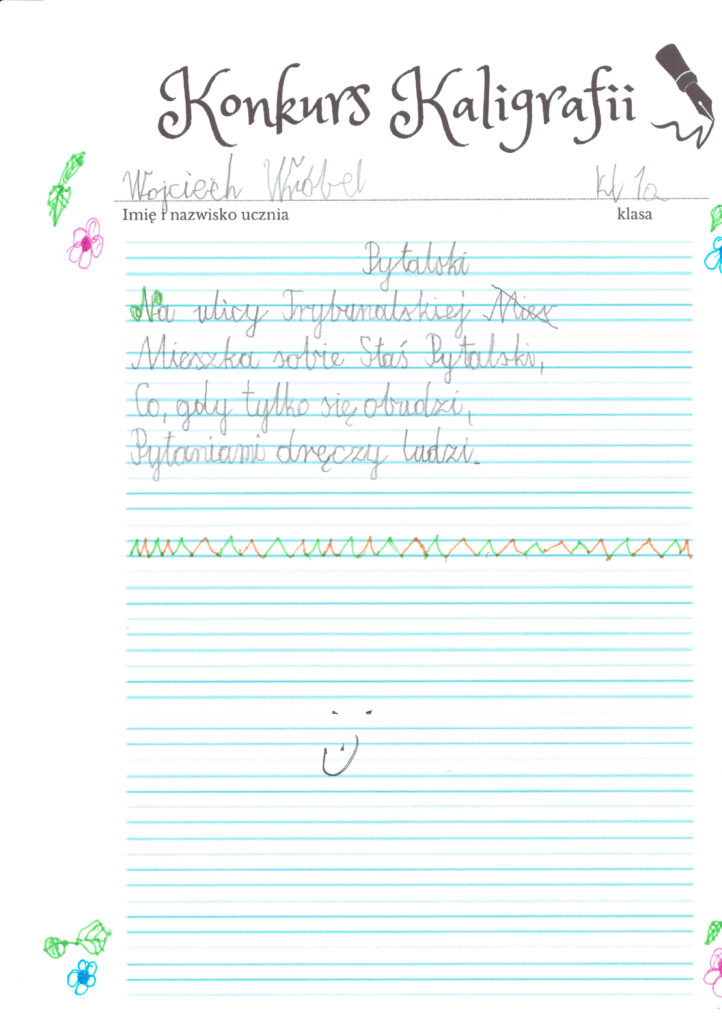 Konkurs Kaligrafii
Wojciech Wróbel kl 1a
Imię i nazwisko ucznia klasa
Pytalski
Na ulicy Trybunalskiej Miex
Mieszka sobie Staś Pytalski,
Co, gdy tylko się obudzi,
Pytaniami dręczy ludzi.